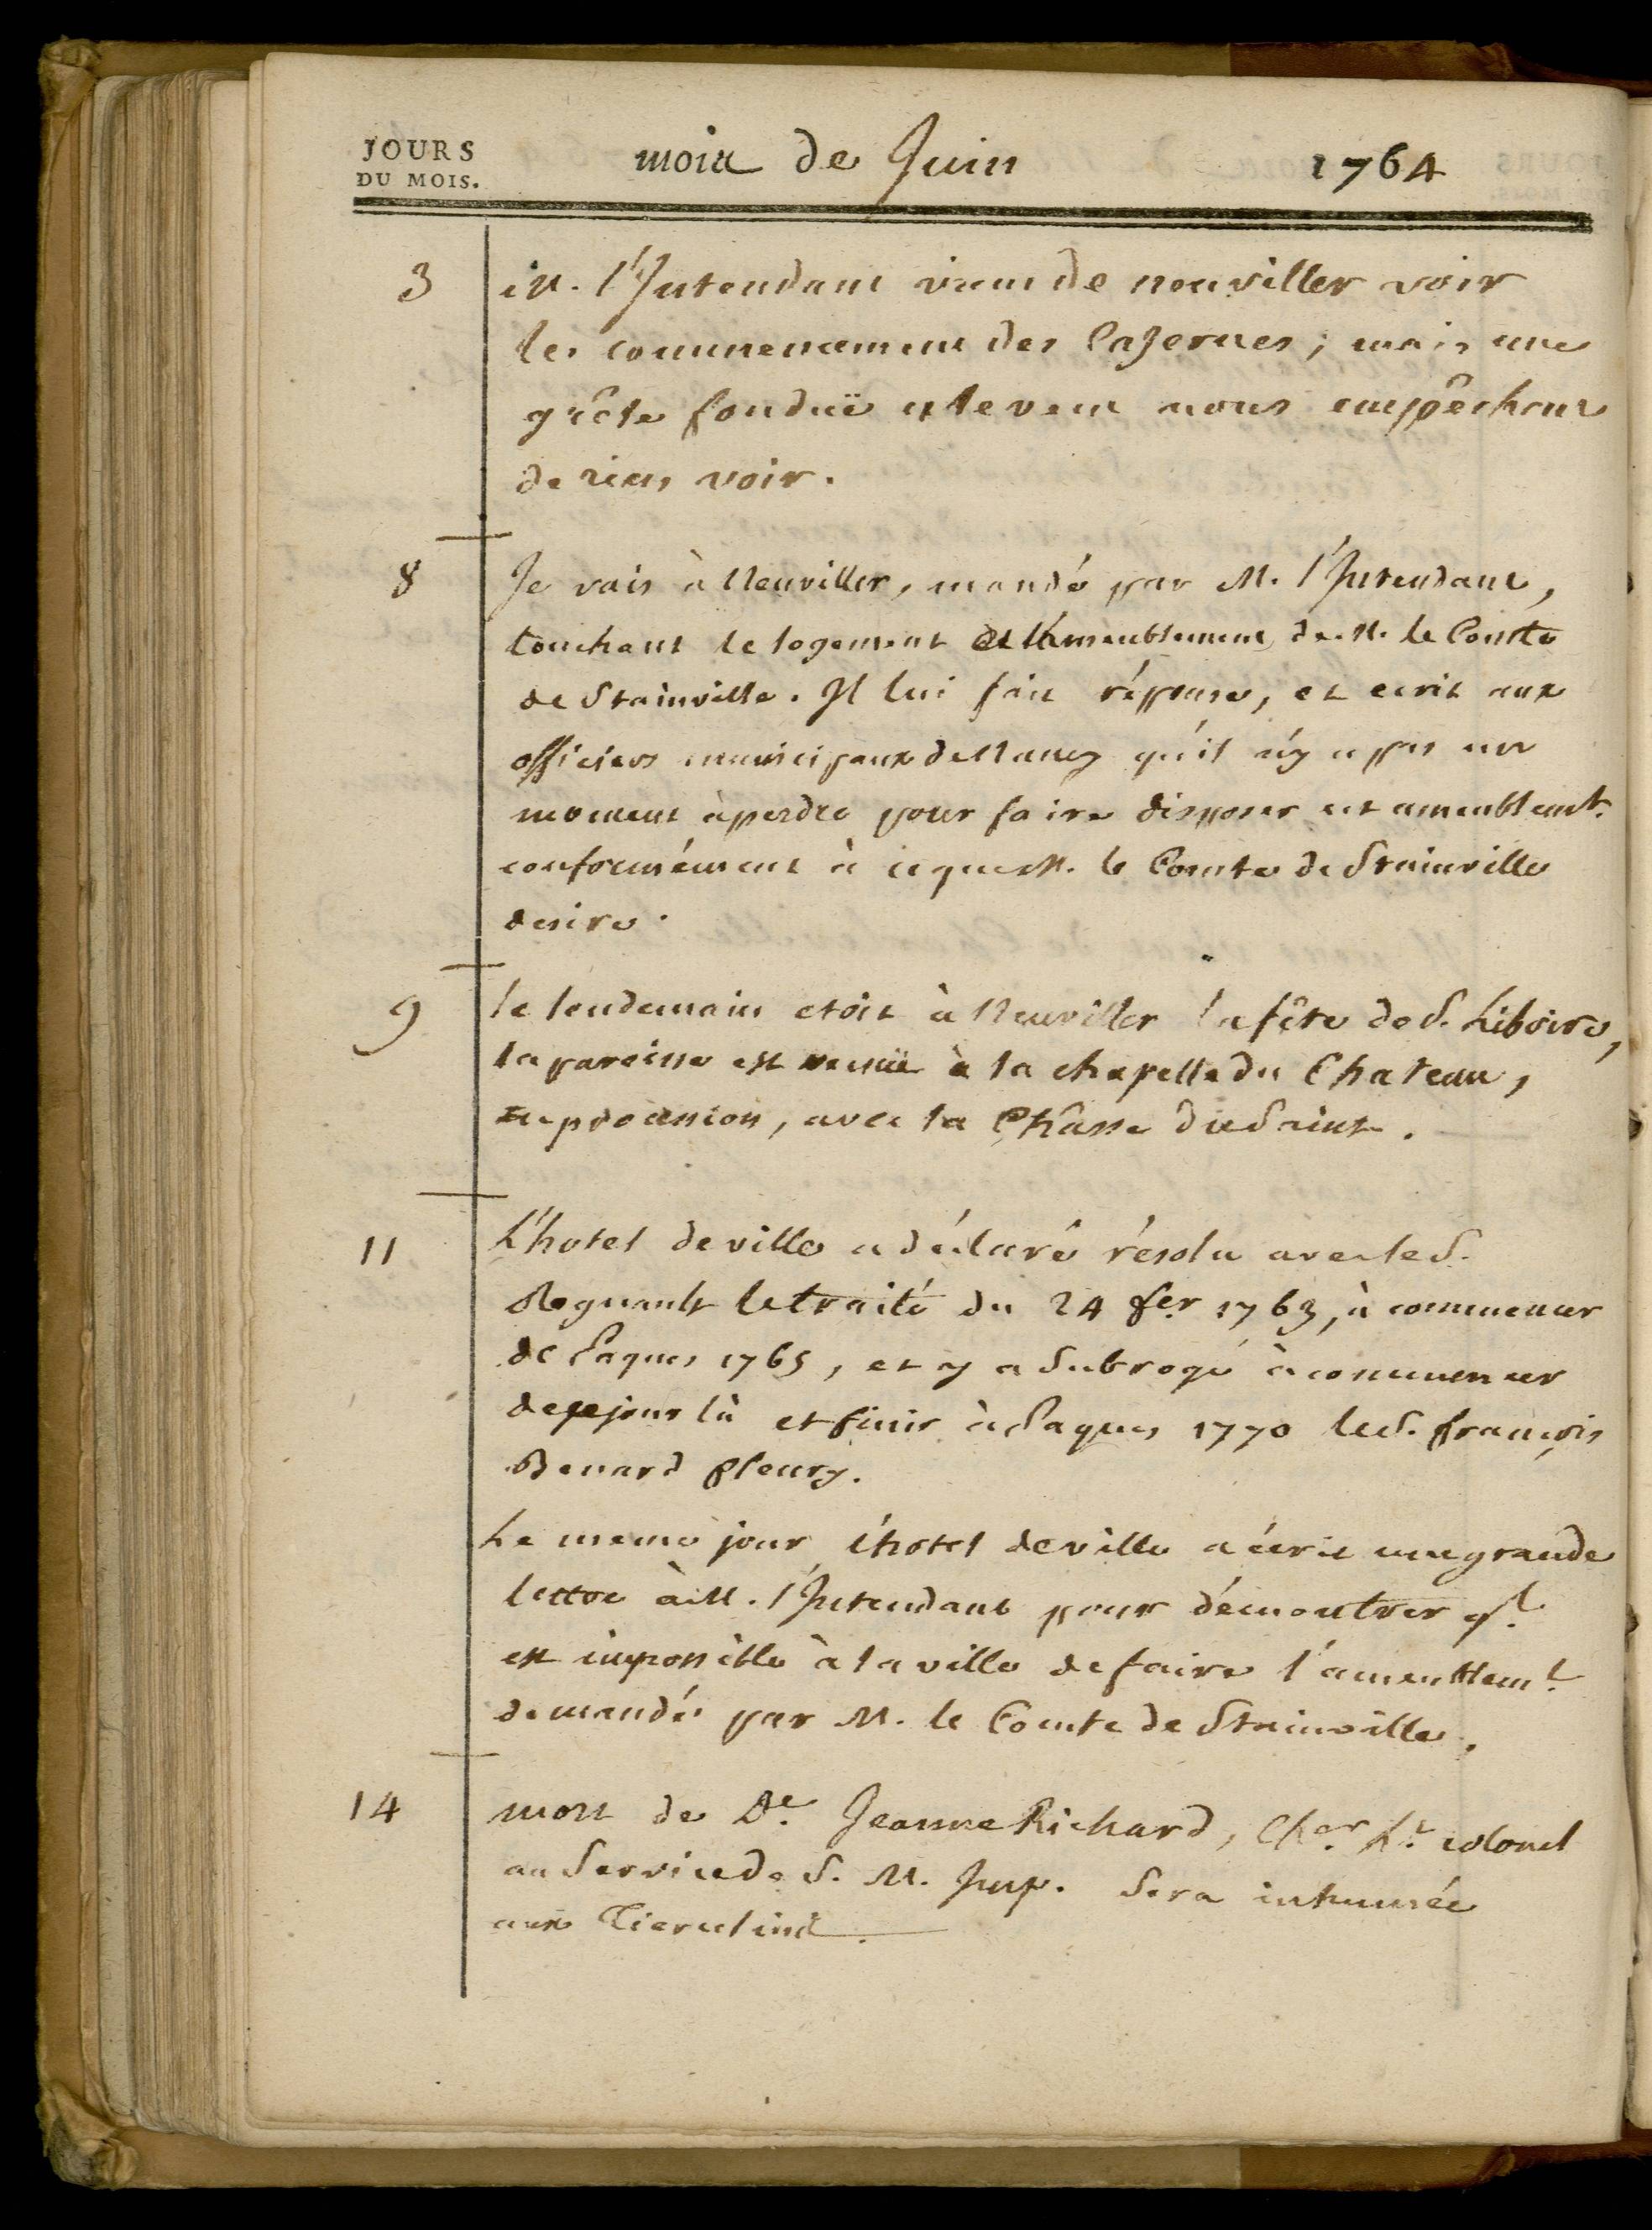 JOURS
DU MOIS.
mois de Juin 1764
3 M. l'Intendant vient de neuviller voir
les commencement des Cazernes ; mais une
grêle fonduë et le vent nous empêchent
de rien voir.
8 Je vais à Neuviller, mandé par M. l'Intendant,
touchant le logement et l'ameublement de M. le Comte
de Stainville. Il lui fait réponse, et ecrit aux
officiers municipaux de Nancy qu'il n'y a pas un
moment à perdre pour faire disposer cet ameublemt.
conformément à ce que M. le Comte de Stainville
desire.
9 le lendemain etoit à Neuviller la fête de S. Liboire,
la paroisse est venuë à la chapelle du Chateau,
en procession, avec la Châsse du Saint.
11 L'hotel de ville a déclaré résolu avec le S.
Regnault le traité du 24 fer 1763, à commencer
de Paques 1765, et y a Subrogé à commencer
de ce jour là et finir à Paques 1770 le S. françois
Benard fleury.
Le meme jour l'hotel de ville a écrit une grande
lettre à M. l'Intendant pour démontrer ql.
est impossible à la ville de faire l'ameublemt.
demandé par M. le Comte de Stainville.
14 mort de De. Jeanne Richard, Cher. Lt. colonel
au Service de S. M. Imp. Sera inhumée
aux Tiercelins.